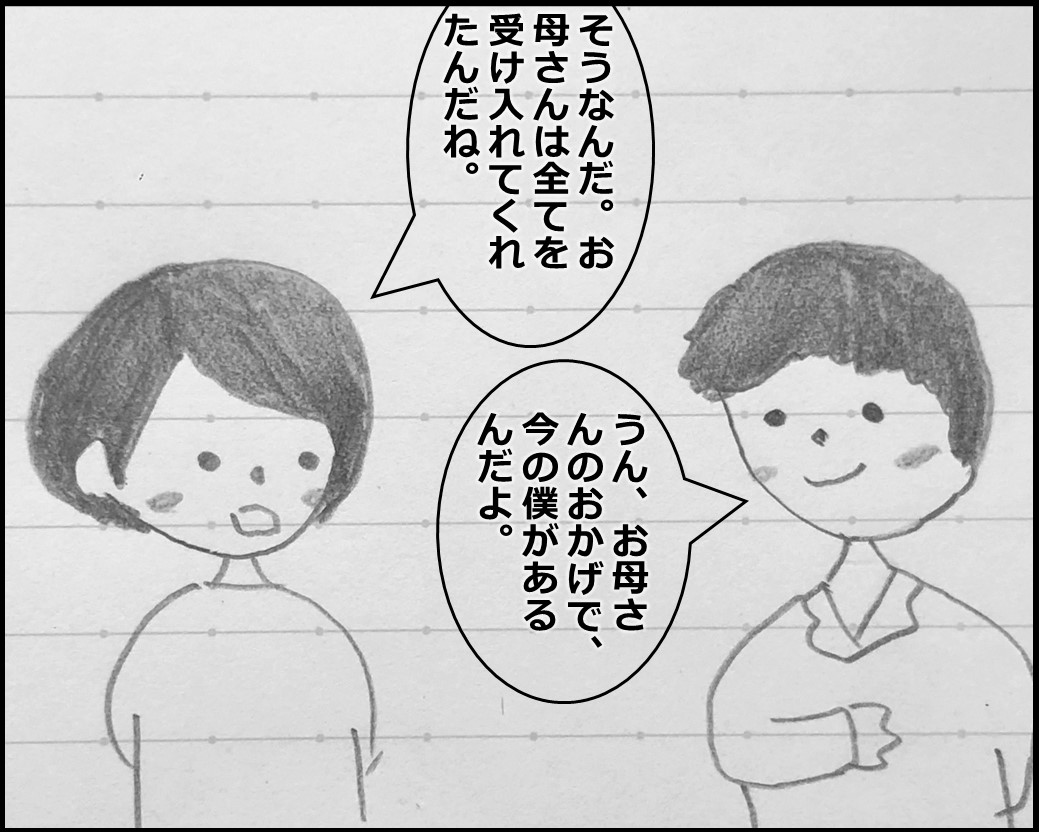 そうなんだ。お
母さんは全てを
受け入れてくれ
たんだね。
うん、お母さ
んのおかげで、
今の僕がある
んだよ。